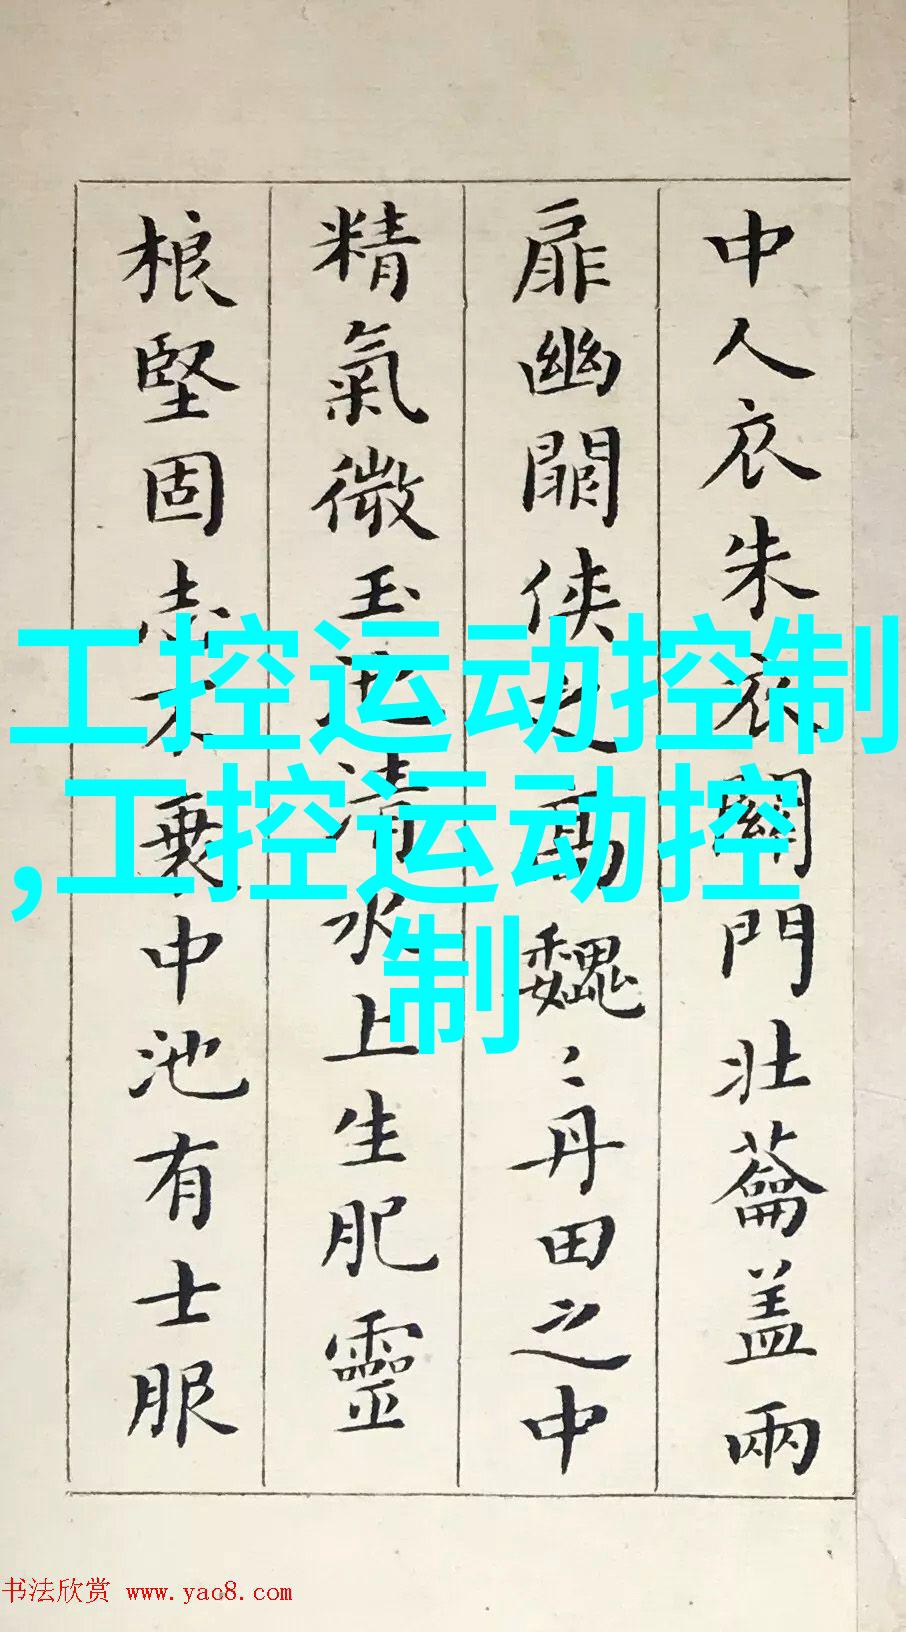 中人衣朱衣關門壯蘥盖兩
扉幽闗侠之高魏〻丹田之中
精氣微玉池清水上生肥靈
根堅固志不衰中池有士服
工控运动控制
,工控运动控
制
书法欣赏 www.yac8.com